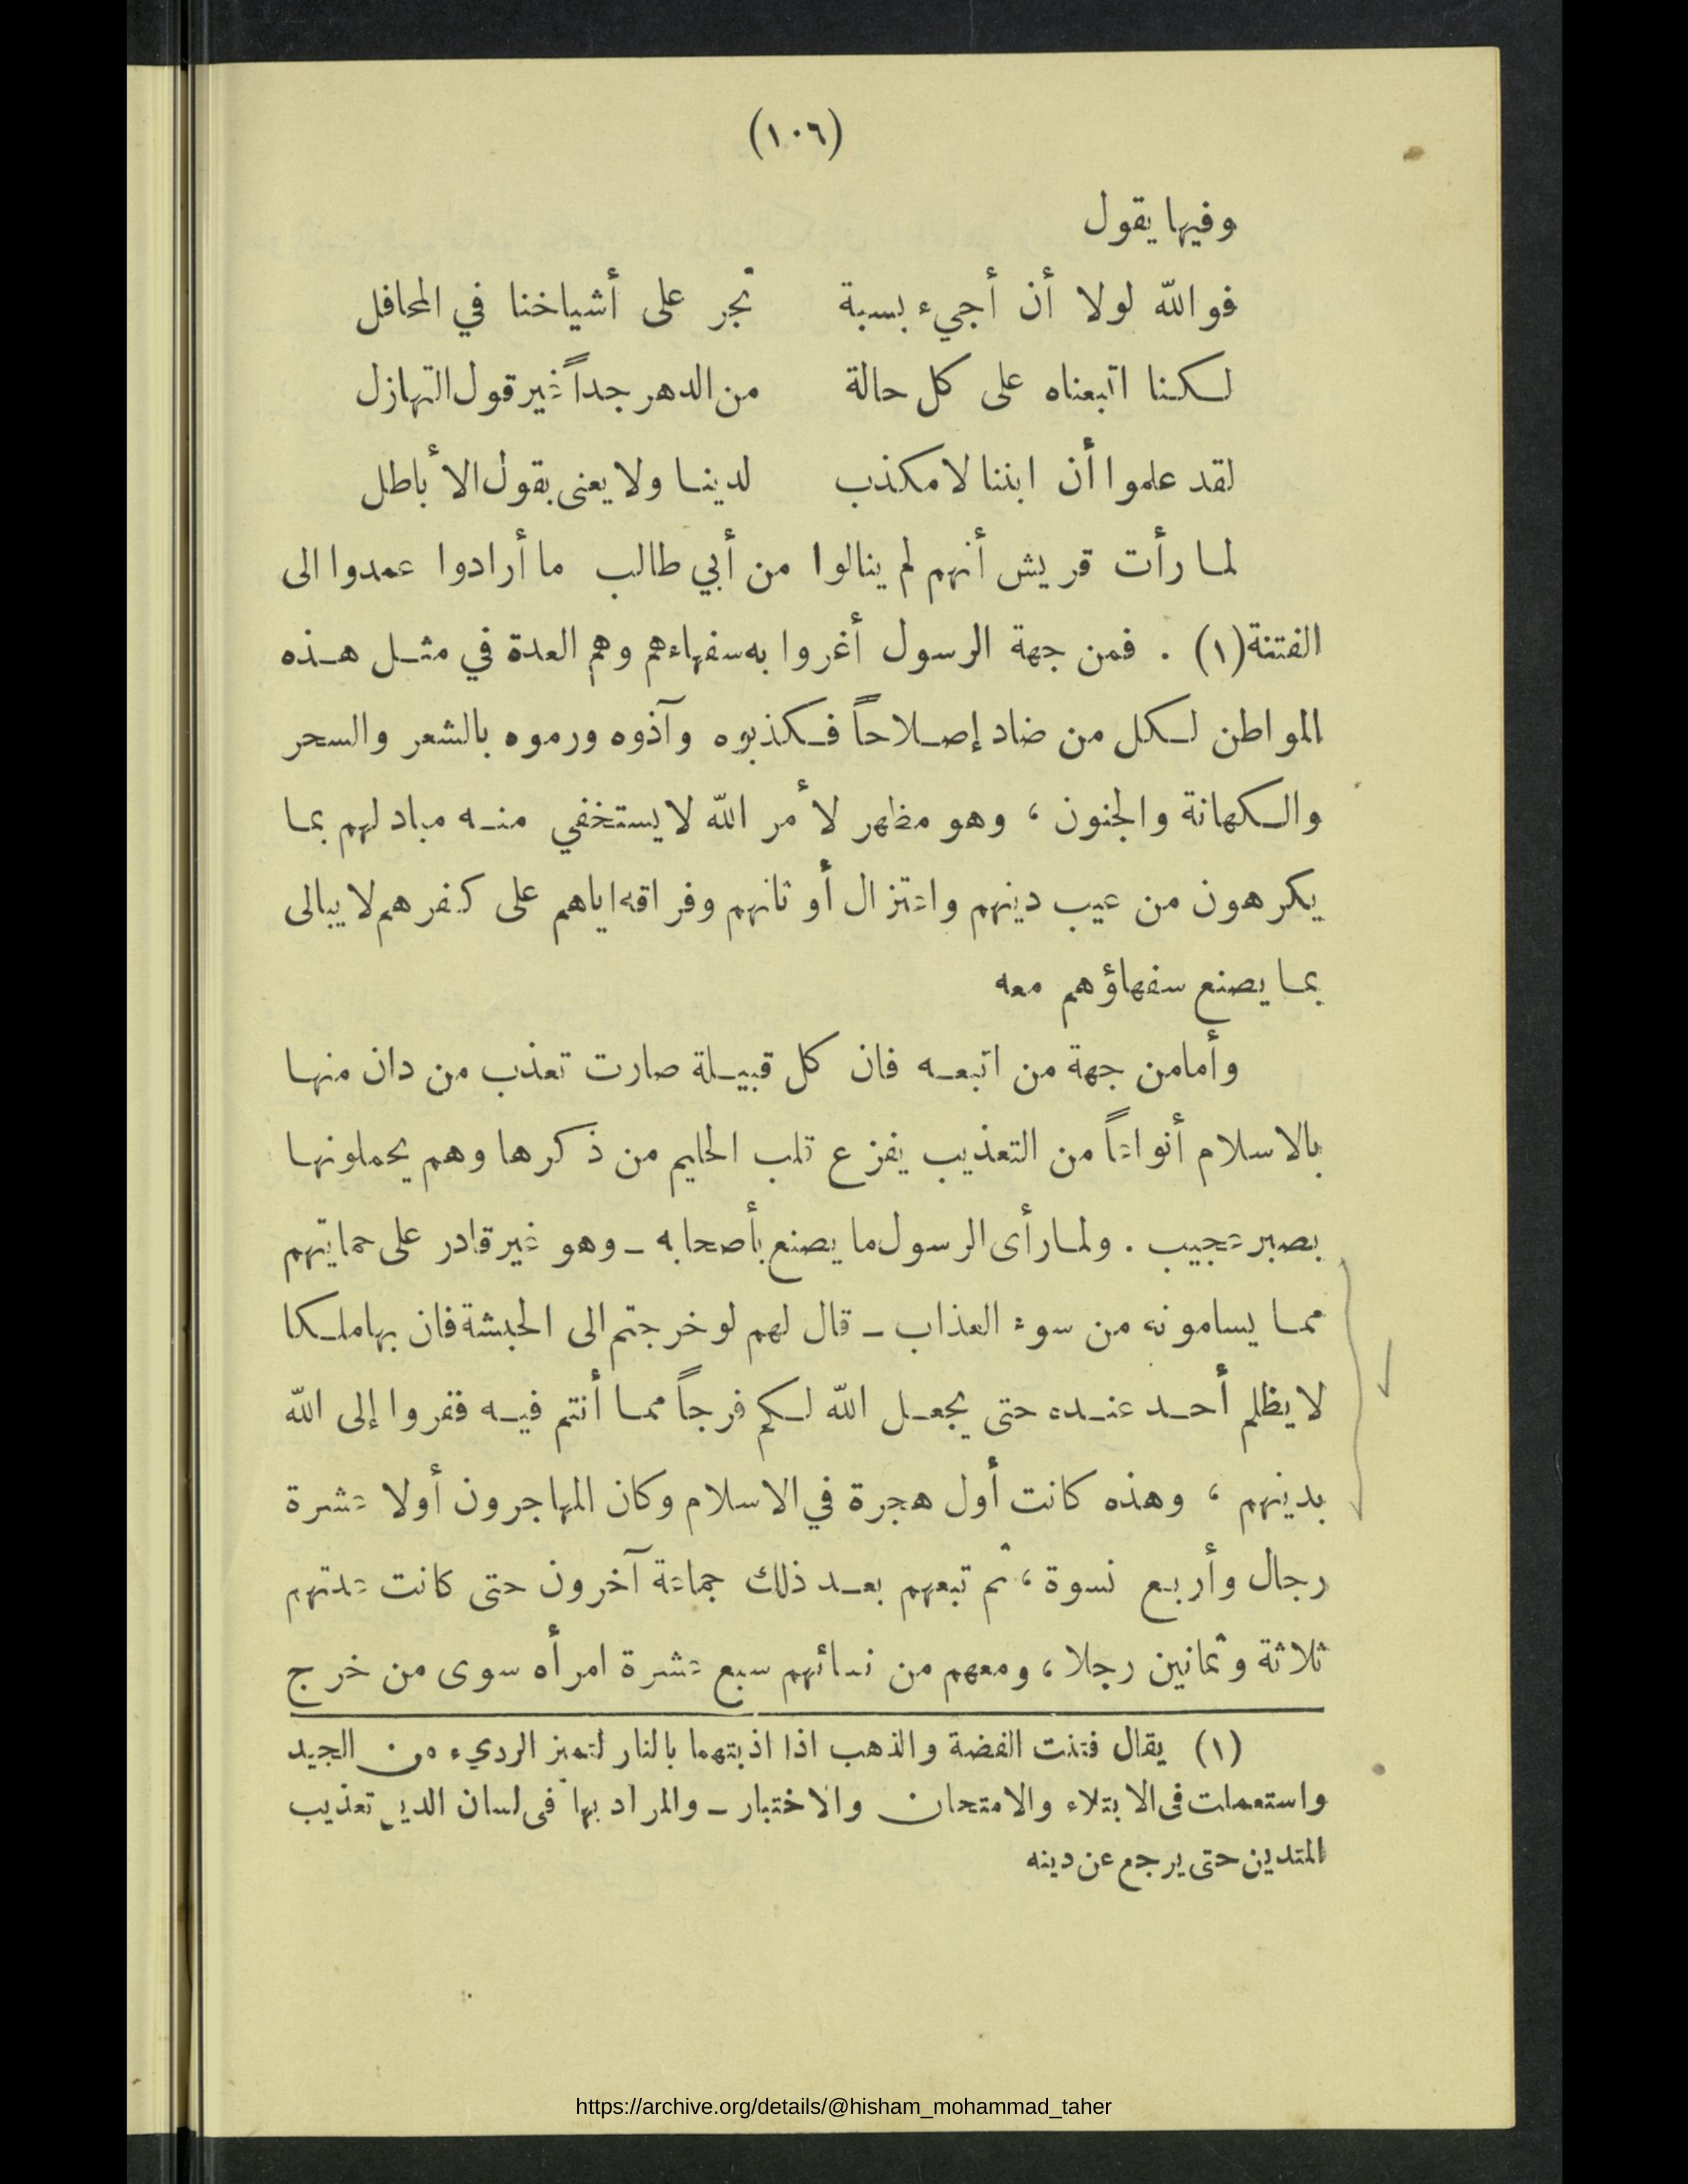 (١٠٦)
وفيها يقول
فوالله لولا أن أجيء بسبة تجر على أشياخنا في المحافل
لكنا اتبعناه على كل حالة من الدهر جداً غير قول التهازل
لقد علموا أن ابننا لا مكذب لدينا ولا يعنى بقول الأباطل
لما رأت قريش أنهم لم ينالوا من أبي طالب ما أرادوا عمدوا الى
الفتنة(١) . فمن جهة الرسول أغروا به سفهاءهم وهم العدة في مثل هذه
المواطن لكل من ضاد إصلاحاً فكذبوه وآذوه ورموه بالشعر والسحر
والكهانة والجنون ، وهو مظهر لأمر الله لا يستخفي منه مباد لهم بما
يكرهون من عيب دينهم واعتزال أوثانهم وفراقه اياهم على كفرهم لا يبالى
بما يصنع سفهاؤهم معه
وأما من جهة من اتبعه فان كل قبيلة صارت تعذب من دان منها
بالاسلام أنواعاً من التعذيب يفزع قلب الحليم من ذكرها وهم يحملونها
بصبر عجيب . ولما رأى الرسول ما يصنع بأصحابه ـ وهو غير قادر على حمايتهم
مما يسامونه من سوء العذاب ـ قال لهم لو خرجتم الى الحبشة فان بها ملكا
لا يظلم أحد عنده حتى يجعل الله لكم فرجاً مما أنتم فيه ففروا إلى الله
بدينهم ، وهذه كانت أول هجرة في الاسلام وكان المهاجرون أولا عشرة
رجال وأربع نسوة ، ثم تبعهم بعد ذلك جماعة آخرون حتى كانت عدتهم
ثلاثة وثمانين رجلا ، ومعهم من نسائهم سبع عشرة امرأه سوى من خرج
(١) يقال فتنت الفضة والذهب اذا اذبتهما بالنار لتميز الرديء من الجيد
واستعملت فى الابتلاء والامتحان والاختبار ـ والمراد بها فى لسان الدين تعذيب
المتدين حتى يرجع عن دينه
https://archive.org/details/@hisham_mohammad_taher